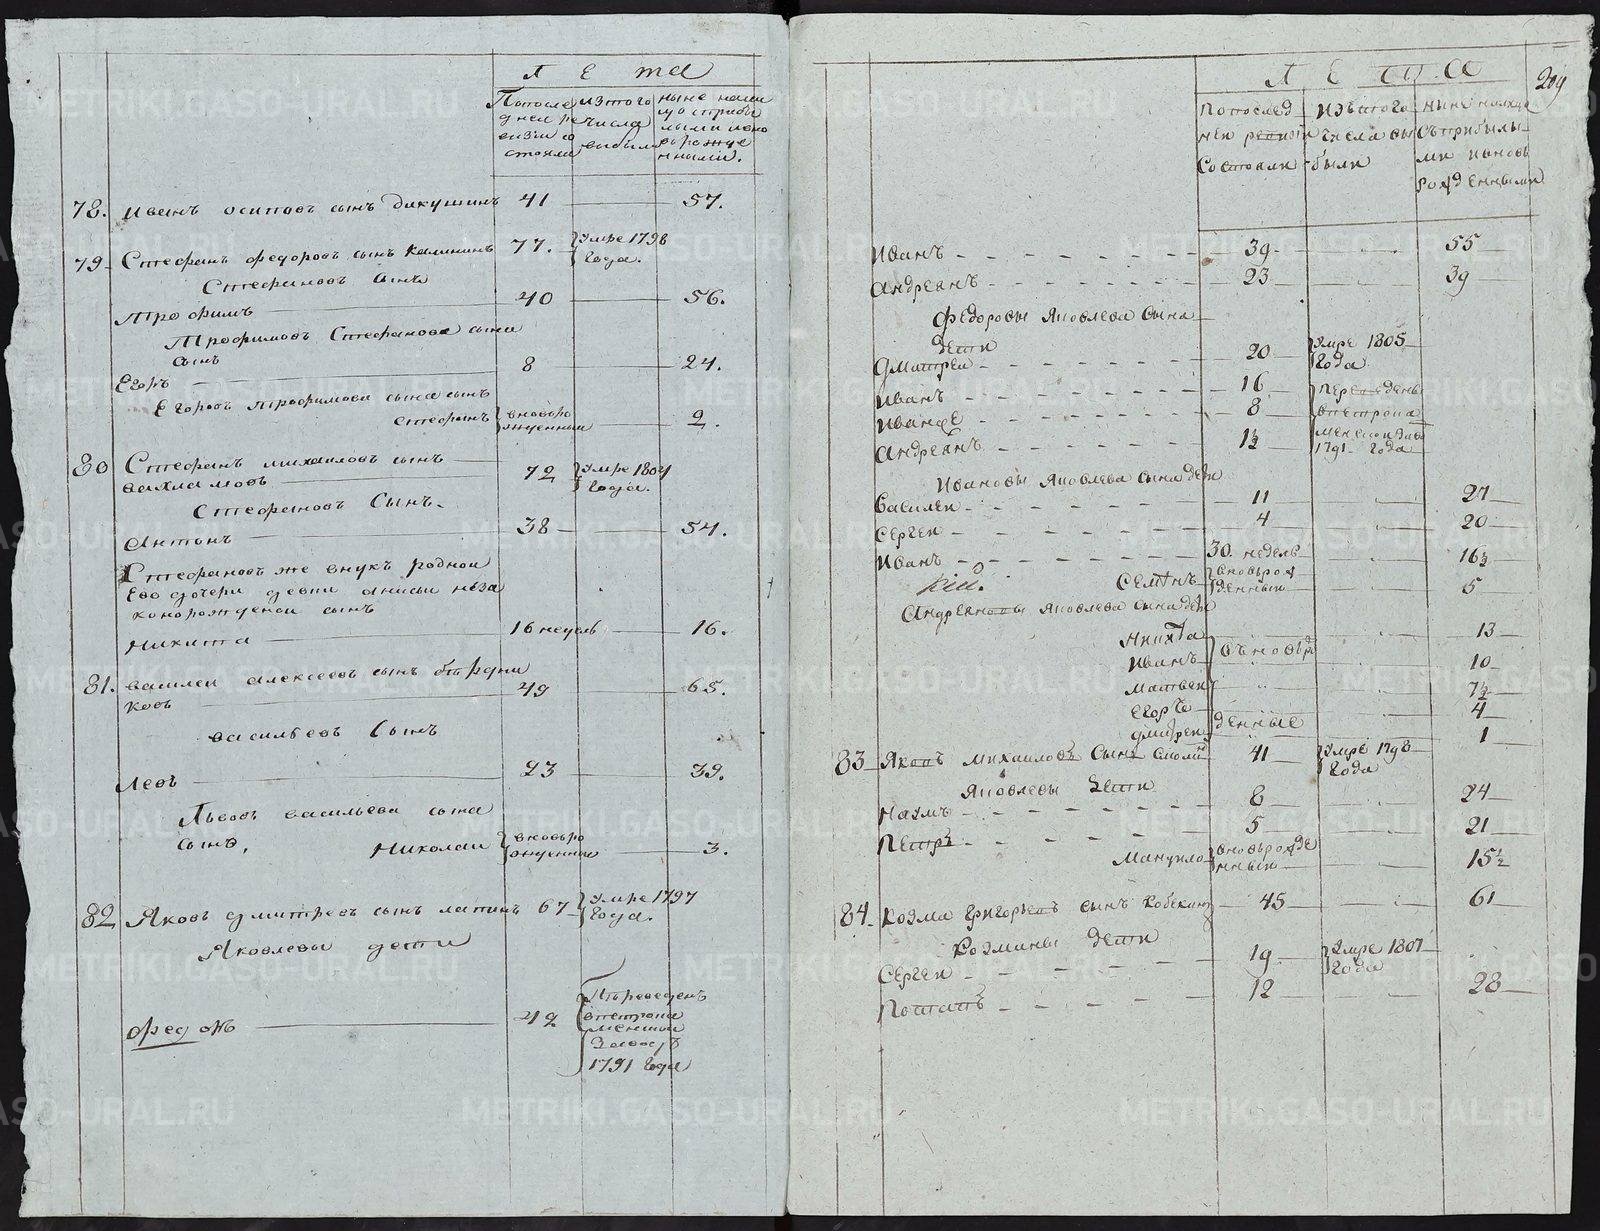 Л Е та
По после дней ревизии состояло
из того числа выбыло
ныне налицо с прибылыми и вновь рожденными.
78. Иванъ осиповъ сынъ дикушинъ 41 57.
79. Стефанъ федоровъ сынъ калининъ 77. Умре 1798 года.
Стефановъ сынъ
Трофимъ 40 56.
Трофимовъ Стефанова сына
сынъ
Егоръ 8 24.
Егоровъ трофимова сына сынъ
стефанъ вновьрожденный 2.
80 Стефанъ михаиловъ сынъ
вахламовъ 72 Умре 1804 года.
Стефановъ Сынъ.
Антонъ 38 54.
Стефановъ же внукъ родной
Его дочери девки анисьи неза
конорожденой сынъ
Никита 16 недель 16.
81. василеи алексеевъ сынъ
ковъ 49 65.
васильевъ Сынъ
Левъ 23 39.
Львовъ васильева сына
сынъ, Николаи вновьрожденный 3.
82 Яковъ дмитревъ сынъ лапинъ 67 Умре 1797 года.
Яковлевы дети
федоръ 42 Переведенъ
в петрока
менской
Заводъ
1791 года
209
Л Е Т А
По последней ревизии состояли
Изъ того числа выбыли
Ныне налицо съ прибылыми и вновь рожденными
Иванъ 39 55
Андреянъ 23 39
Федоровы Яковлева сына
дети
Дмитреи 20 Умре 1805 года
Иванъ 16 Переведены
Иванже 8 в петрока
Андреянъ 1½ менской заво 1791 года
Ивановы Яковлева сына дети
Василеи 11 27
Сергеи 4 20
Иванъ 30 недель 16½
Семенъ вновьрожденный 5
Андреяновы Яковлева сына дети
Никита 13
Иванъ вновьро 10
Матвеи 7½
Егоръ жденные 4
Дмитреи 1
83 Яковъ Михаиловъ Сынъ 41 Умре 1798 года
Яковлевы дети
Наумъ 8 24
Петръ 5 21
Мануило вновьрожденный 15½
84. Козма Григорьевъ сынъ Кобекинъ 45 61
Козмины дети
Сергеи 19 Умре 1807 года
Потапъ 12 28
METRIKI.GASO-URAL.RU